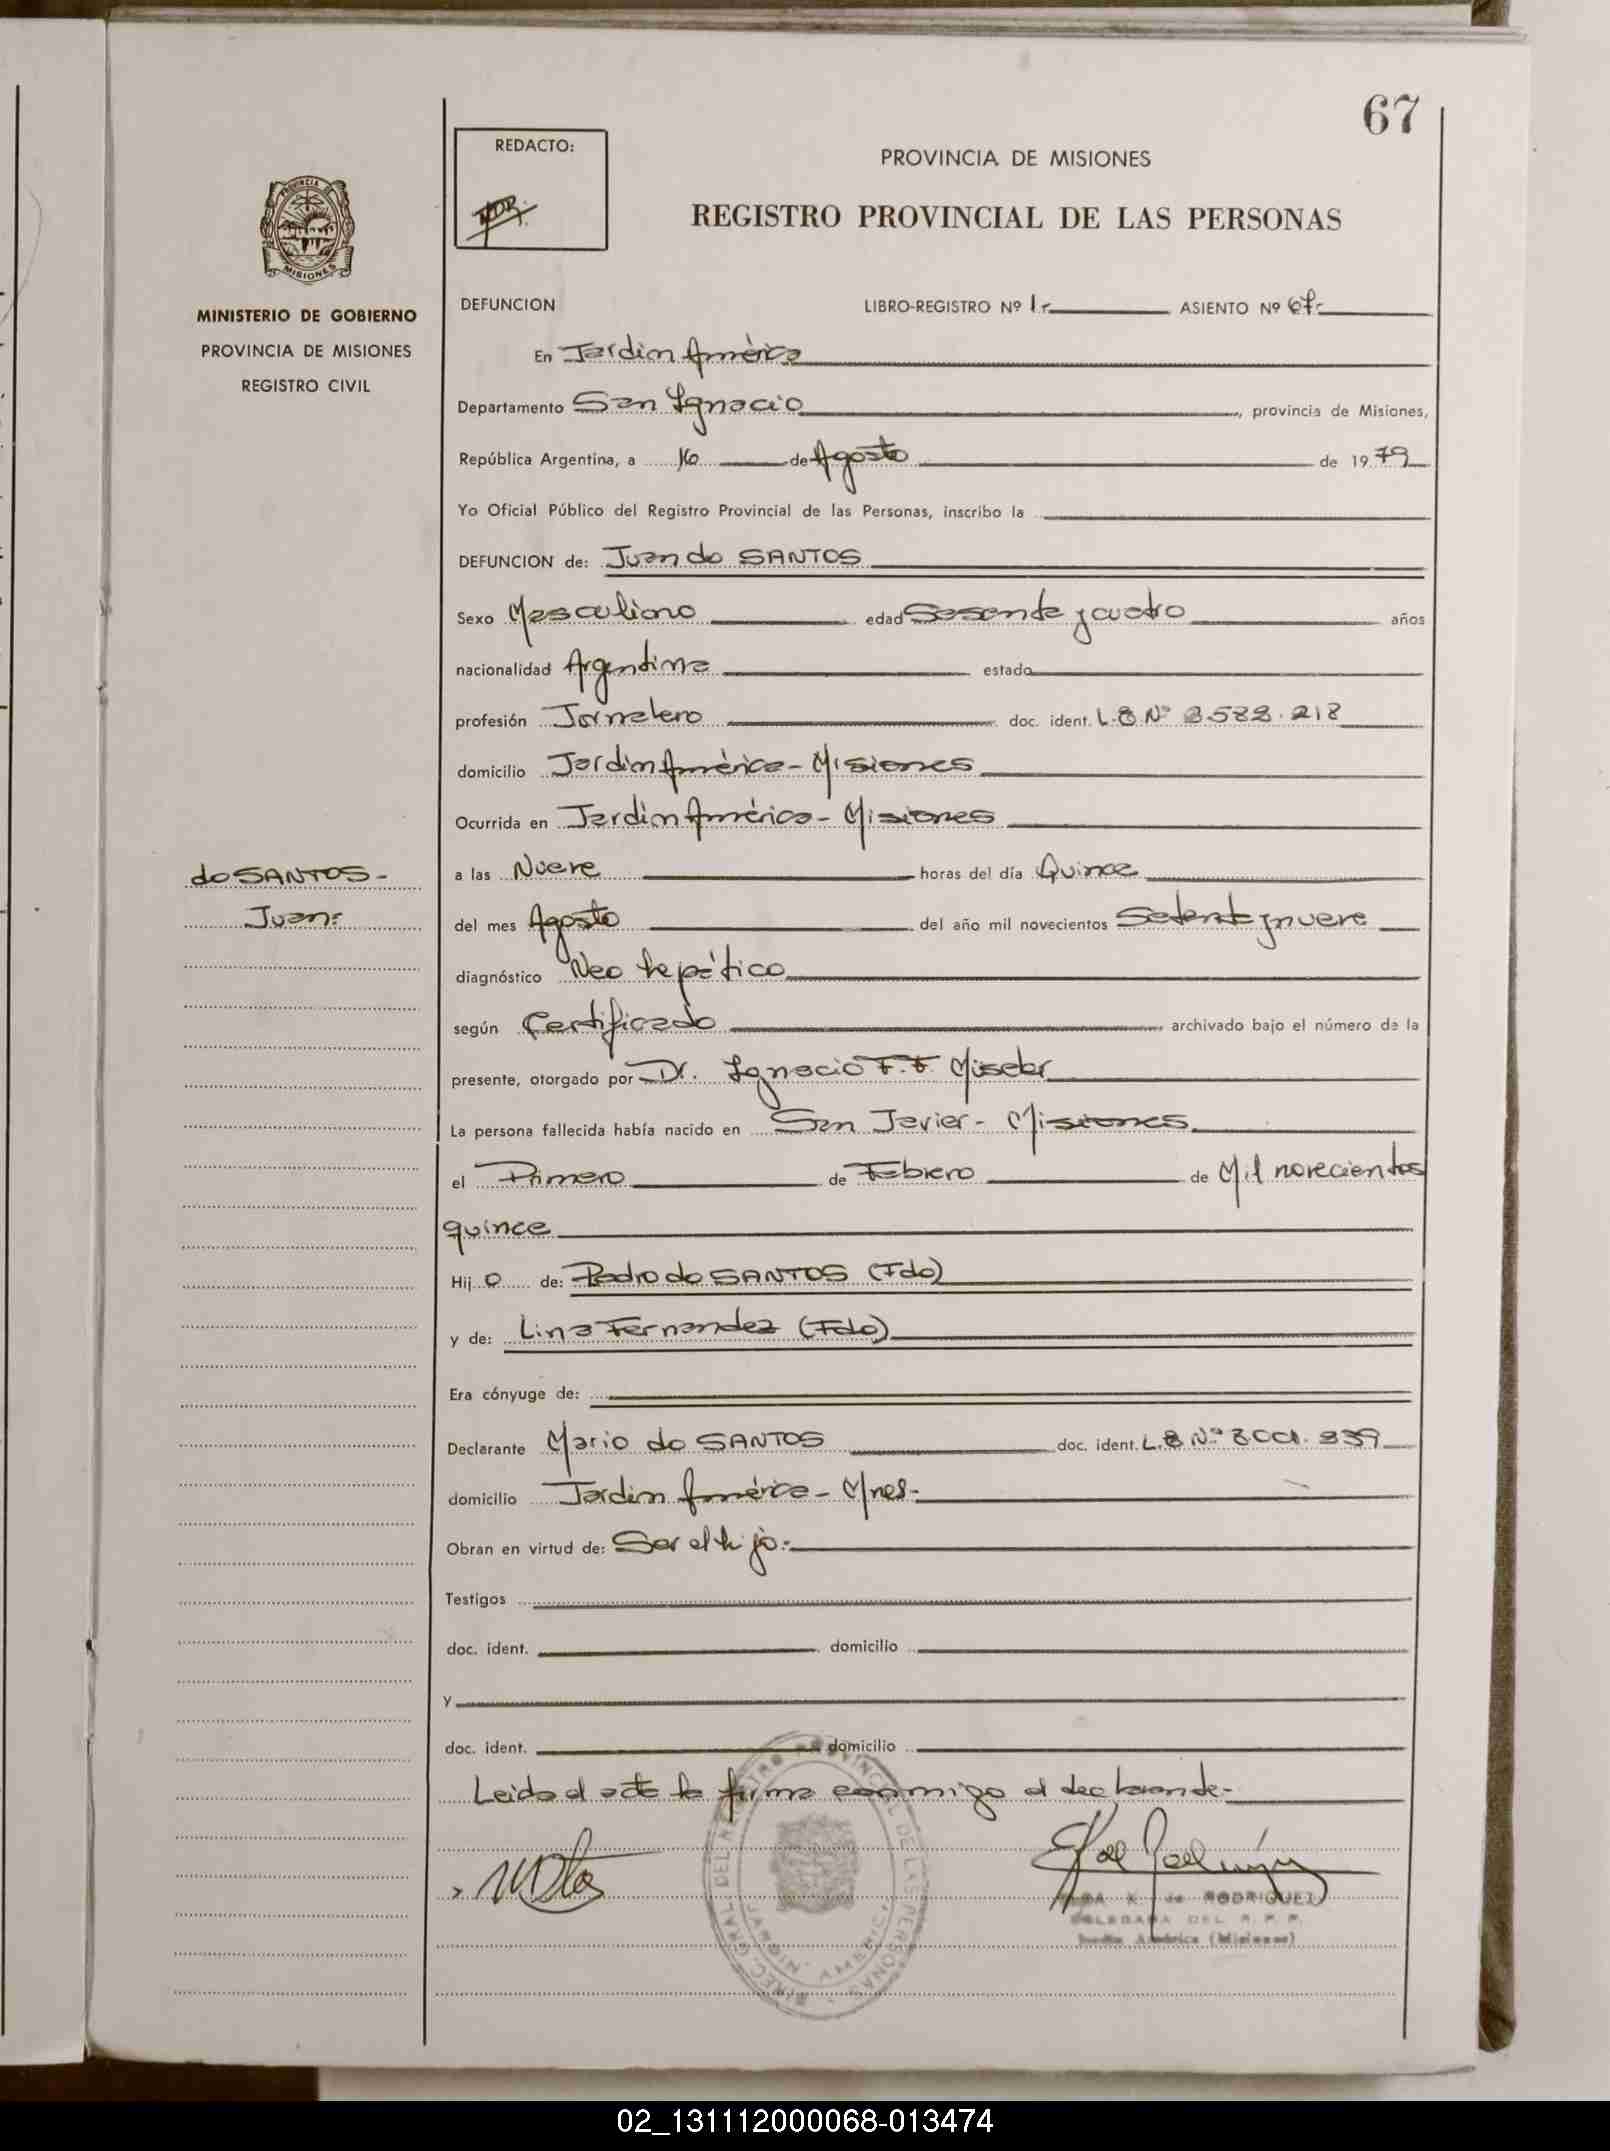 67
REDACTO:
PROVINCIA DE MISIONES
REGISTRO PROVINCIAL DE LAS PERSONAS
PROVINCIA DE
MISIONES
MINISTERIO DE GOBIERNO
PROVINCIA DE MISIONES
REGISTRO CIVIL
DEFUNCION LIBRO-REGISTRO Nº 1- ASIENTO Nº 67-
En Jardín América
Departamento San Ignacio, provincia de Misiones,
República Argentina, a 16 de Agosto de 1979
Yo Oficial Público del Registro Provincial de las Personas, inscribo la
DEFUNCION de: Juan do SANTOS
Sexo Masculino edad Sesenta y cuatro años
nacionalidad Argentina estado
profesión Jornalero doc. ident. L.E Nº 3.588.218
domicilio Jardín América - Misiones
Ocurrida en Jardín América - Misiones
do SANTOS-
Juan-
a las Nueve horas del día Quince
del mes Agosto del año mil novecientos Setenta y nueve
diagnóstico Neo hepático
según Certificado archivado bajo el número de la
presente, otorgado por Dr. Ignacio F.F.
La persona fallecida había nacido en San Javier - Misiones
el Primero de Febrero de Mil novecientos
quince
Hijo de: Pedro do SANTOS (Fdo)
y de: Lina Fernandez (Fdo)
Era cónyuge de:
Declarante Mario do SANTOS doc. ident. L.E Nº
domicilio Jardín América - Mnes-
Obran en virtud de: Ser el hijo.-
Testigos
doc. ident. domicilio
y
doc. ident. domicilio
Leida el acta la firma conmigo el declarante-
K. de RODRIGUEZ
DELEGADA DEL R. P. P.
Jardín América (Misiones)
DIREC. GRAL DEL REGISTRO PROVINCIAL DE LAS PERSONAS
JARDIN AMERICA
02_131112000068-013474